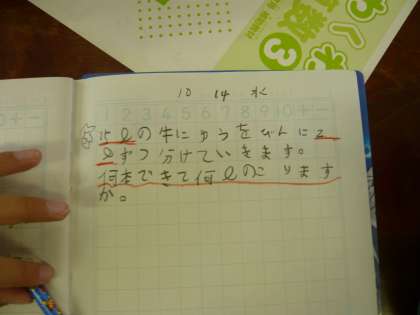 わくわく
算数3
10 14 水
1 2 3 4 5 6 7 8 9 10 + −
15ℓの牛にゅうをびんに2
ℓずつ分けていきます。
何本できて何ℓのこります
か。